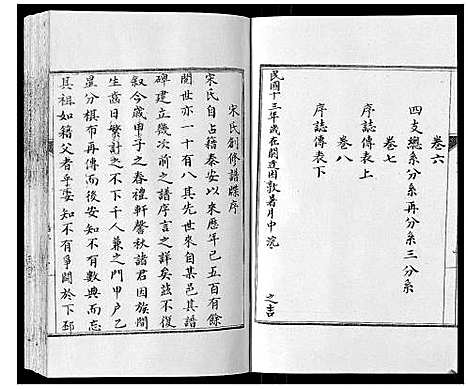 卷六
四支總系分系再分系三分系
卷七
序誌傳表上
卷八
序誌傳表下
民國十三年歲在閼逢困敦暑月中浣 之吉
宋氏創修譜牒序
宋氏自占籍泰安以來歷年已五百有餘
閱世亦一十有八其先世來自某邑其譜
碑建立幾次前之譜序言之詳矣茲不復
叙今歲甲子之春禮軒馨秋諸君因族間
生齒日繁計之不下千人兼之門甲戶乙
星分棋布再傳而後安知不有數典而忘
其祖如籍父者乎安知不有爭閱於下邳